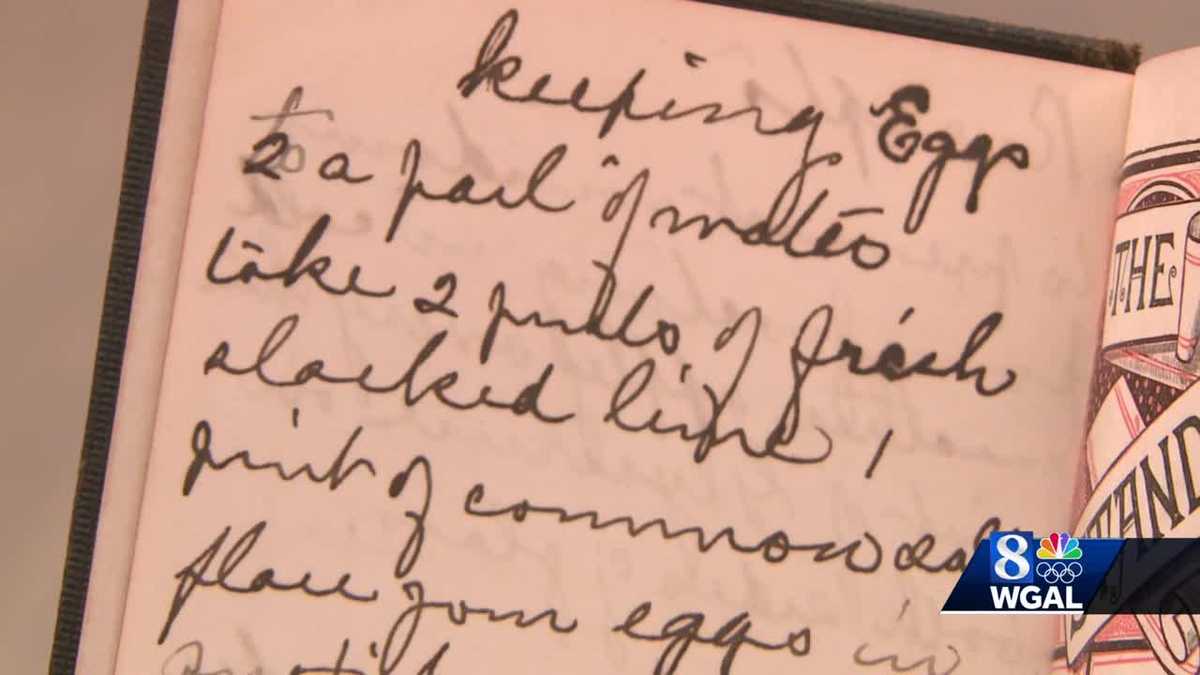 keeping Eggs
to a pail of water
take 2 pints of fresh
slacked lime, 1
pint of common salt
place your eggs in
THE
8
WGAL